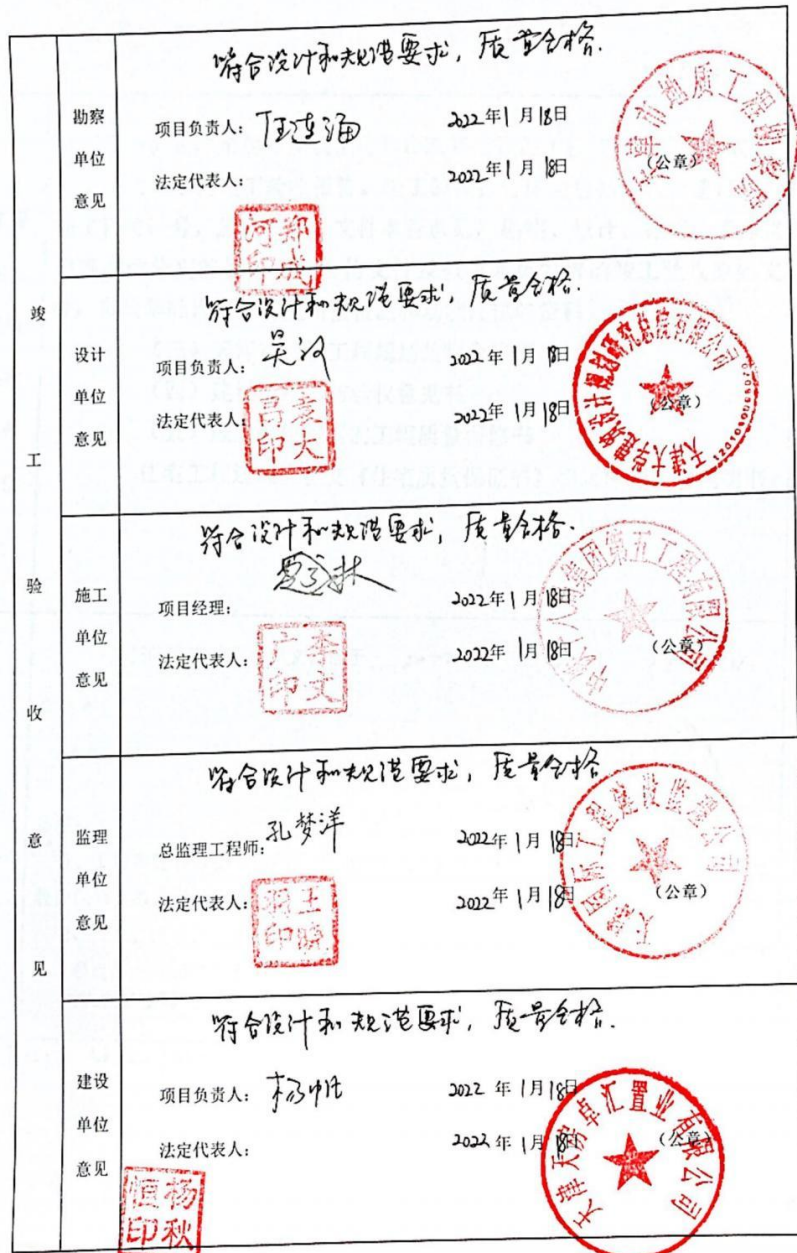 竣工验收意见
勘察单位意见
符合设计和规范要求，质量合格.
项目负责人：任连海 2022年1月18日
法定代表人： 2022年1月18日
（公章）
郑成河印
天津市地质工程勘察院
设计单位意见
符合设计和规范要求，质量合格.
项目负责人：吴汉 2022年1月18日
法定代表人： 2022年1月18日
（公章）
袁大昌印
天津大学建筑设计规划研究总院有限公司
施工单位意见
符合设计和规范要求，质量合格.
项目经理： 2022年1月18日
法定代表人： 2022年1月18日
（公章）
集团第五工程有限公司
监理单位意见
符合设计和规范要求，质量合格
总监理工程师：孔梦洋 2022年1月18日
法定代表人： 2022年1月18日
（公章）
王晓 印
工程建设监理公司
建设单位意见
符合设计和规范要求，质量合格.
项目负责人：杨帆 2022年1月18日
法定代表人： 2022年1月18日
（公章）
杨秋恒印
天津天房卓汇置业有限公司